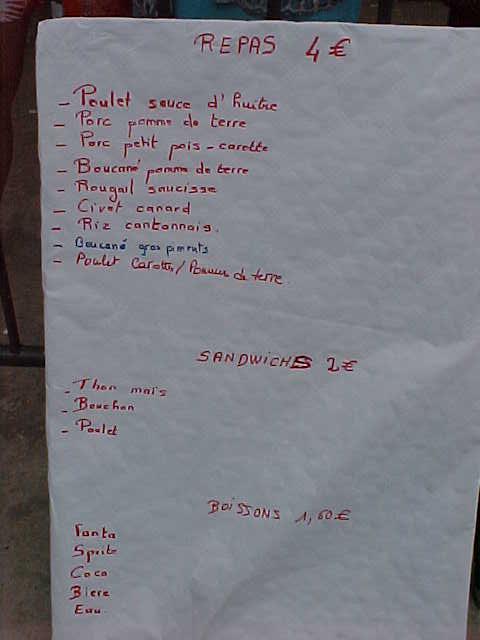 REPAS 4€
- Poulet sauce d'huitre
- Porc pomme de terre
- Porc petit pois - carotte
- Boucané pomme de terre
- Rougail saucisse
- Civet canard
- Riz cantonnais.
- Boucané gros piments
- Poulet Carottes/Pomme de terre.
SANDWICHS 2€
- Thon maïs
- Bouchon
- Poulet
BOISSONS 1,60€
Fanta
Sprite
Coca
Biere
Eau.